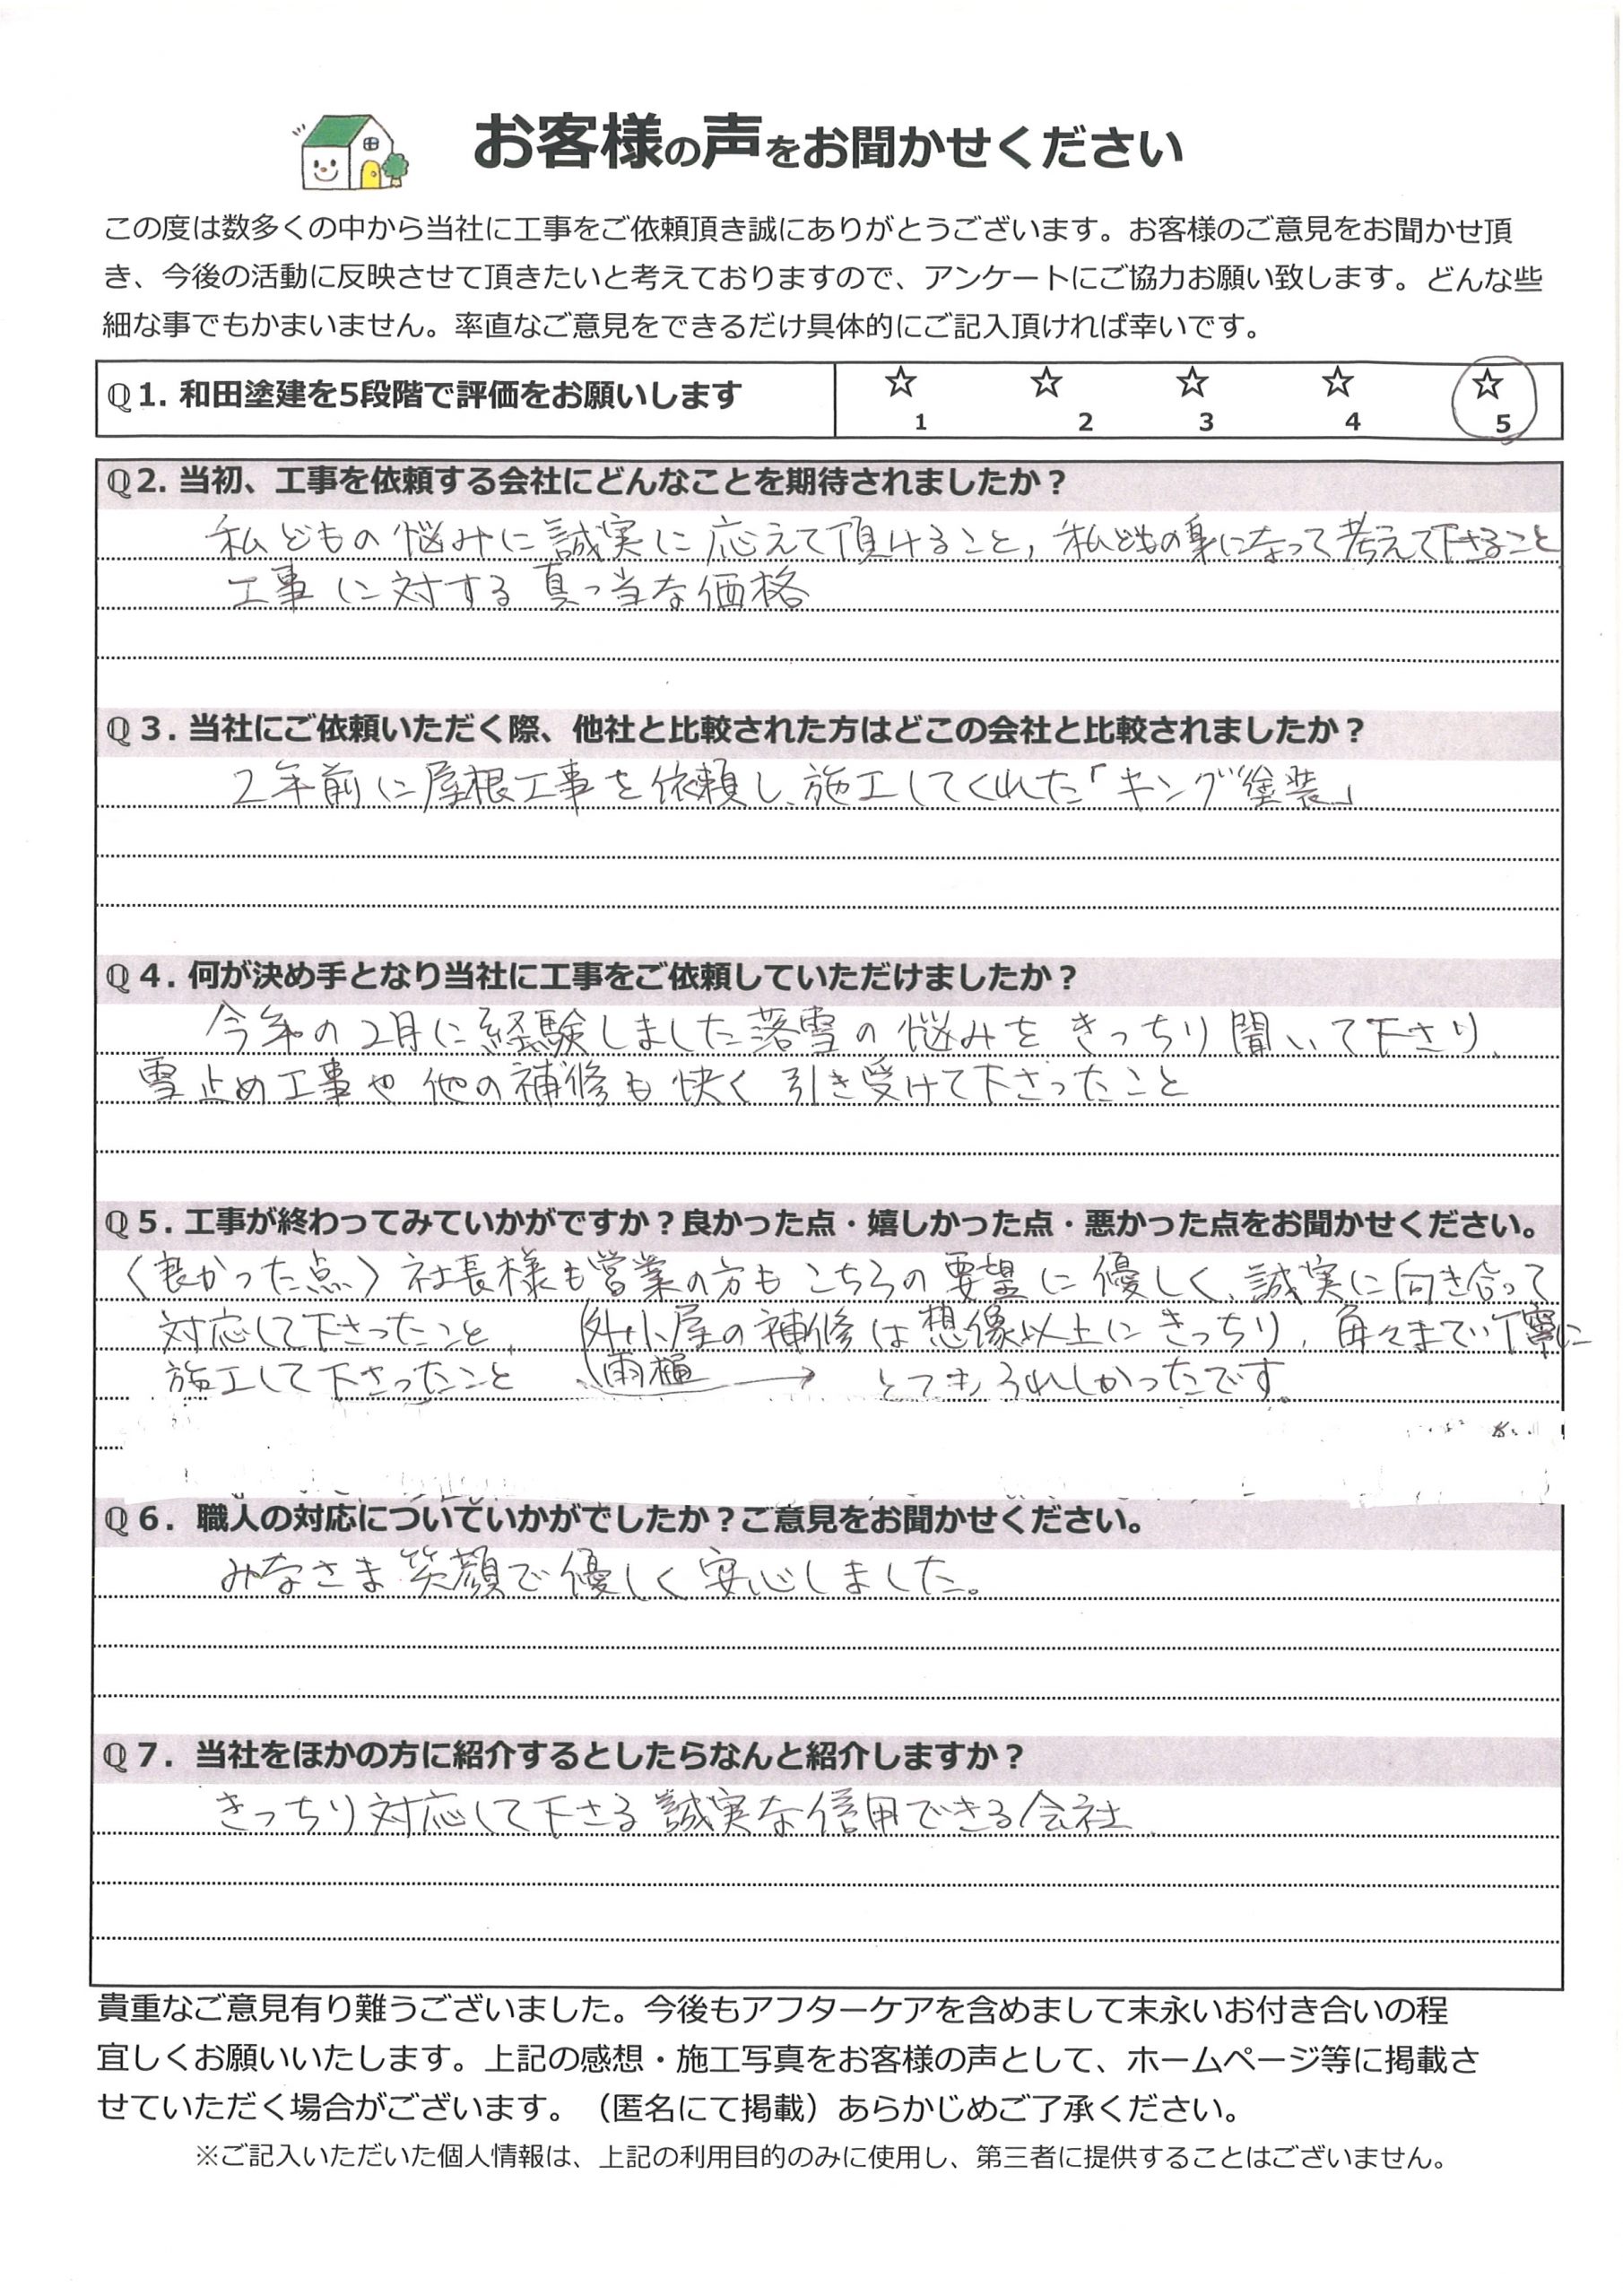 お客様の声をお聞かせください
この度は数多くの中から当社に工事をご依頼頂き誠にありがとうございます。お客様のご意見をお聞かせ頂
き、今後の活動に反映させて頂きたいと考えておりますので、アンケートにご協力お願い致します。どんな些
細な事でもかまいません。率直なご意見をできるだけ具体的にご記入頂ければ幸いです。
Q1. 和田塗建を5段階で評価をお願いします
☆ ☆ ☆ ☆ ☆
1 2 3 4 5
Q2. 当初、工事を依頼する会社にどんなことを期待されましたか？
私どもの悩みに誠実に応えて頂けること，私どもの身になって考えて下さること
工事に対する真っ当な価格
Q３. 当社にご依頼いただく際、他社と比較された方はどこの会社と比較されましたか？
2年前に屋根工事を依頼し、施工してくれた「キング塗装」
Q４. 何が決め手となり当社に工事をご依頼していただけましたか？
今年の2月に経験しました落雪の悩みをきっちり聞いて下さり、
雪止め工事や他の補修も快く引き受けて下さったこと
Q５. 工事が終わってみていかがですか？良かった点・嬉しかった点・悪かった点をお聞かせください。
〈良かった点〉社長様も営業の方もこちらの要望に優しく、誠実に向き合って
対応して下さったこと、外小屋の補修は想像以上にきっちり，角々まで丁寧に
施工して下さったこと 雨樋 → とてもうれしかったです。
Q６. 職人の対応についていかがでしたか？ご意見をお聞かせください。
みなさま笑顔で優しく安心しました。
Q７. 当社をほかの方に紹介するとしたらなんと紹介しますか？
きっちり対応して下さる誠実な信用できる会社
貴重なご意見有り難うございました。今後もアフターケアを含めまして末永いお付き合いの程
宜しくお願いいたします。上記の感想・施工写真をお客様の声として、ホームページ等に掲載さ
せていただく場合がございます。（匿名にて掲載）あらかじめご了承ください。
※ご記入いただいた個人情報は、上記の利用目的のみに使用し、第三者に提供することはございません。